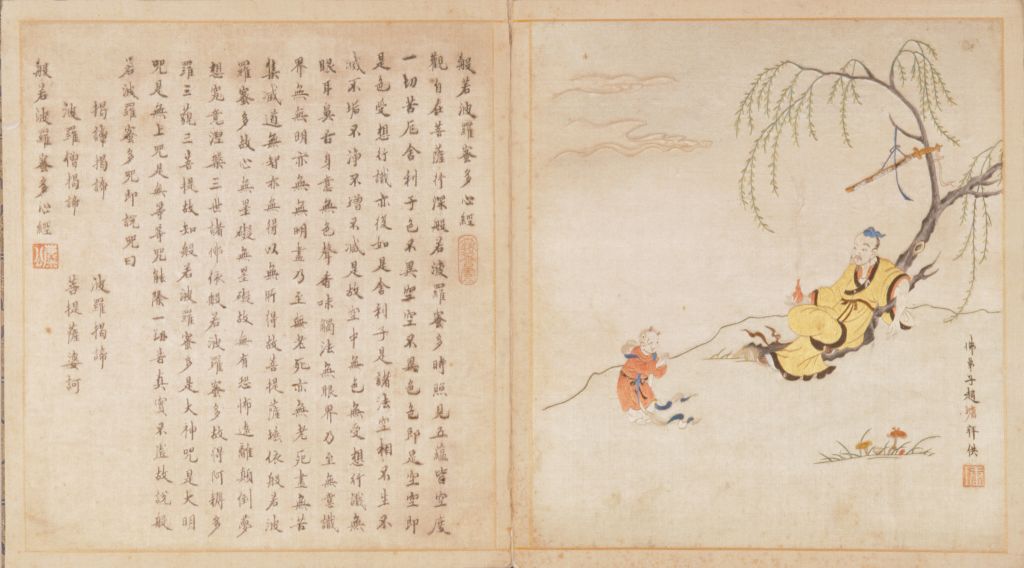 佛弟子趙拜供
般若波羅蜜多心經
觀自在菩薩行深般若波羅蜜多時照見五蘊皆空度
一切苦厄舍利子色不異空空不異色色即是空空即
是色受想行識亦復如是舍利子是諸法空相不生不
滅不垢不淨不增不減是故空中無色無受想行識無
眼耳鼻舌身意無色聲香味觸法無眼界乃至無意識
界無無明亦無無明盡乃至無老死亦無老死盡無苦
集滅道無智亦無得以無所得故菩提薩埵依般若波
羅蜜多故心無罣礙無罣礙故無有恐怖遠離顛倒夢
想究竟涅槃三世諸佛依般若波羅蜜多故得阿耨多
羅三藐三菩提故知般若波羅蜜多是大神咒是大明
咒是無上咒是無等等咒能除一切苦真實不虛故說般
若波羅蜜多咒即說咒曰
揭諦揭諦 波羅揭諦
波羅僧揭諦 菩提薩婆訶
般若波羅蜜多心經